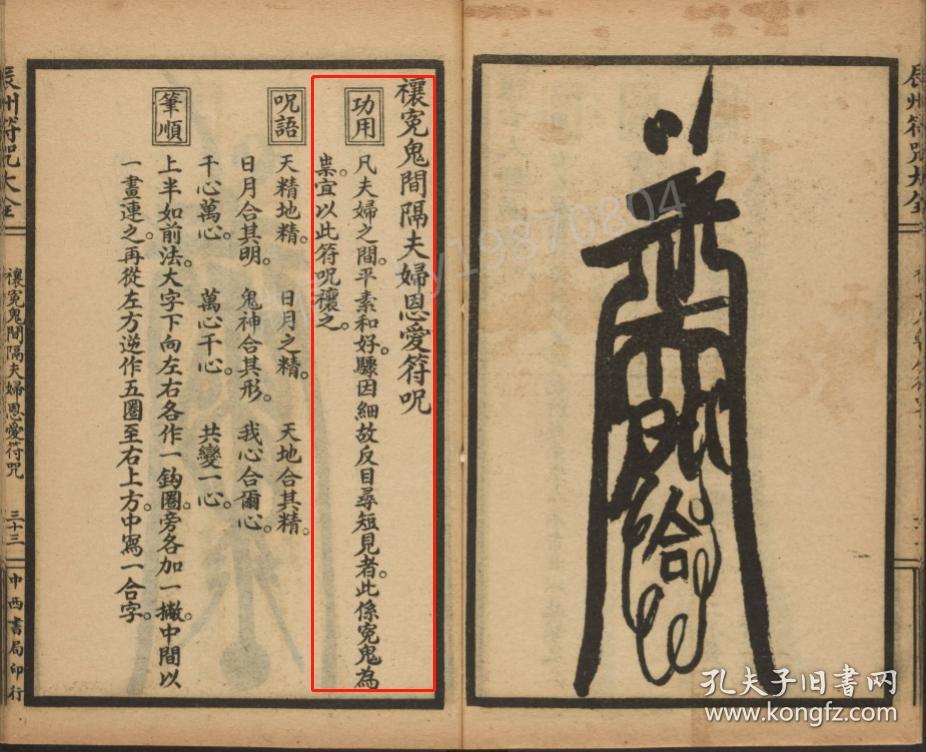 禳冤鬼間隔夫婦恩愛符咒
功用
凡夫婦之間。平素和好。驟因細故反目尋短見者。此係冤鬼為
祟。宜以此符咒禳之。
咒語
天精地精。 日月之精。 天地合其精。
日月合其明。 鬼神合其形。 我心合爾心。
千心萬心。 萬心千心。 共變一心。
筆順
上半如前法。大字下向左右各作一鈎圈。旁各加一撇。中間以
一畫連之。再從左方逆作五圈至右上方。中寫一合字。
辰州符咒大全
禳冤鬼間隔夫婦恩愛符咒
三十三
中西書局印行
辰州符咒大全
合
19870804
孔夫子旧書网
www.kongfz.com